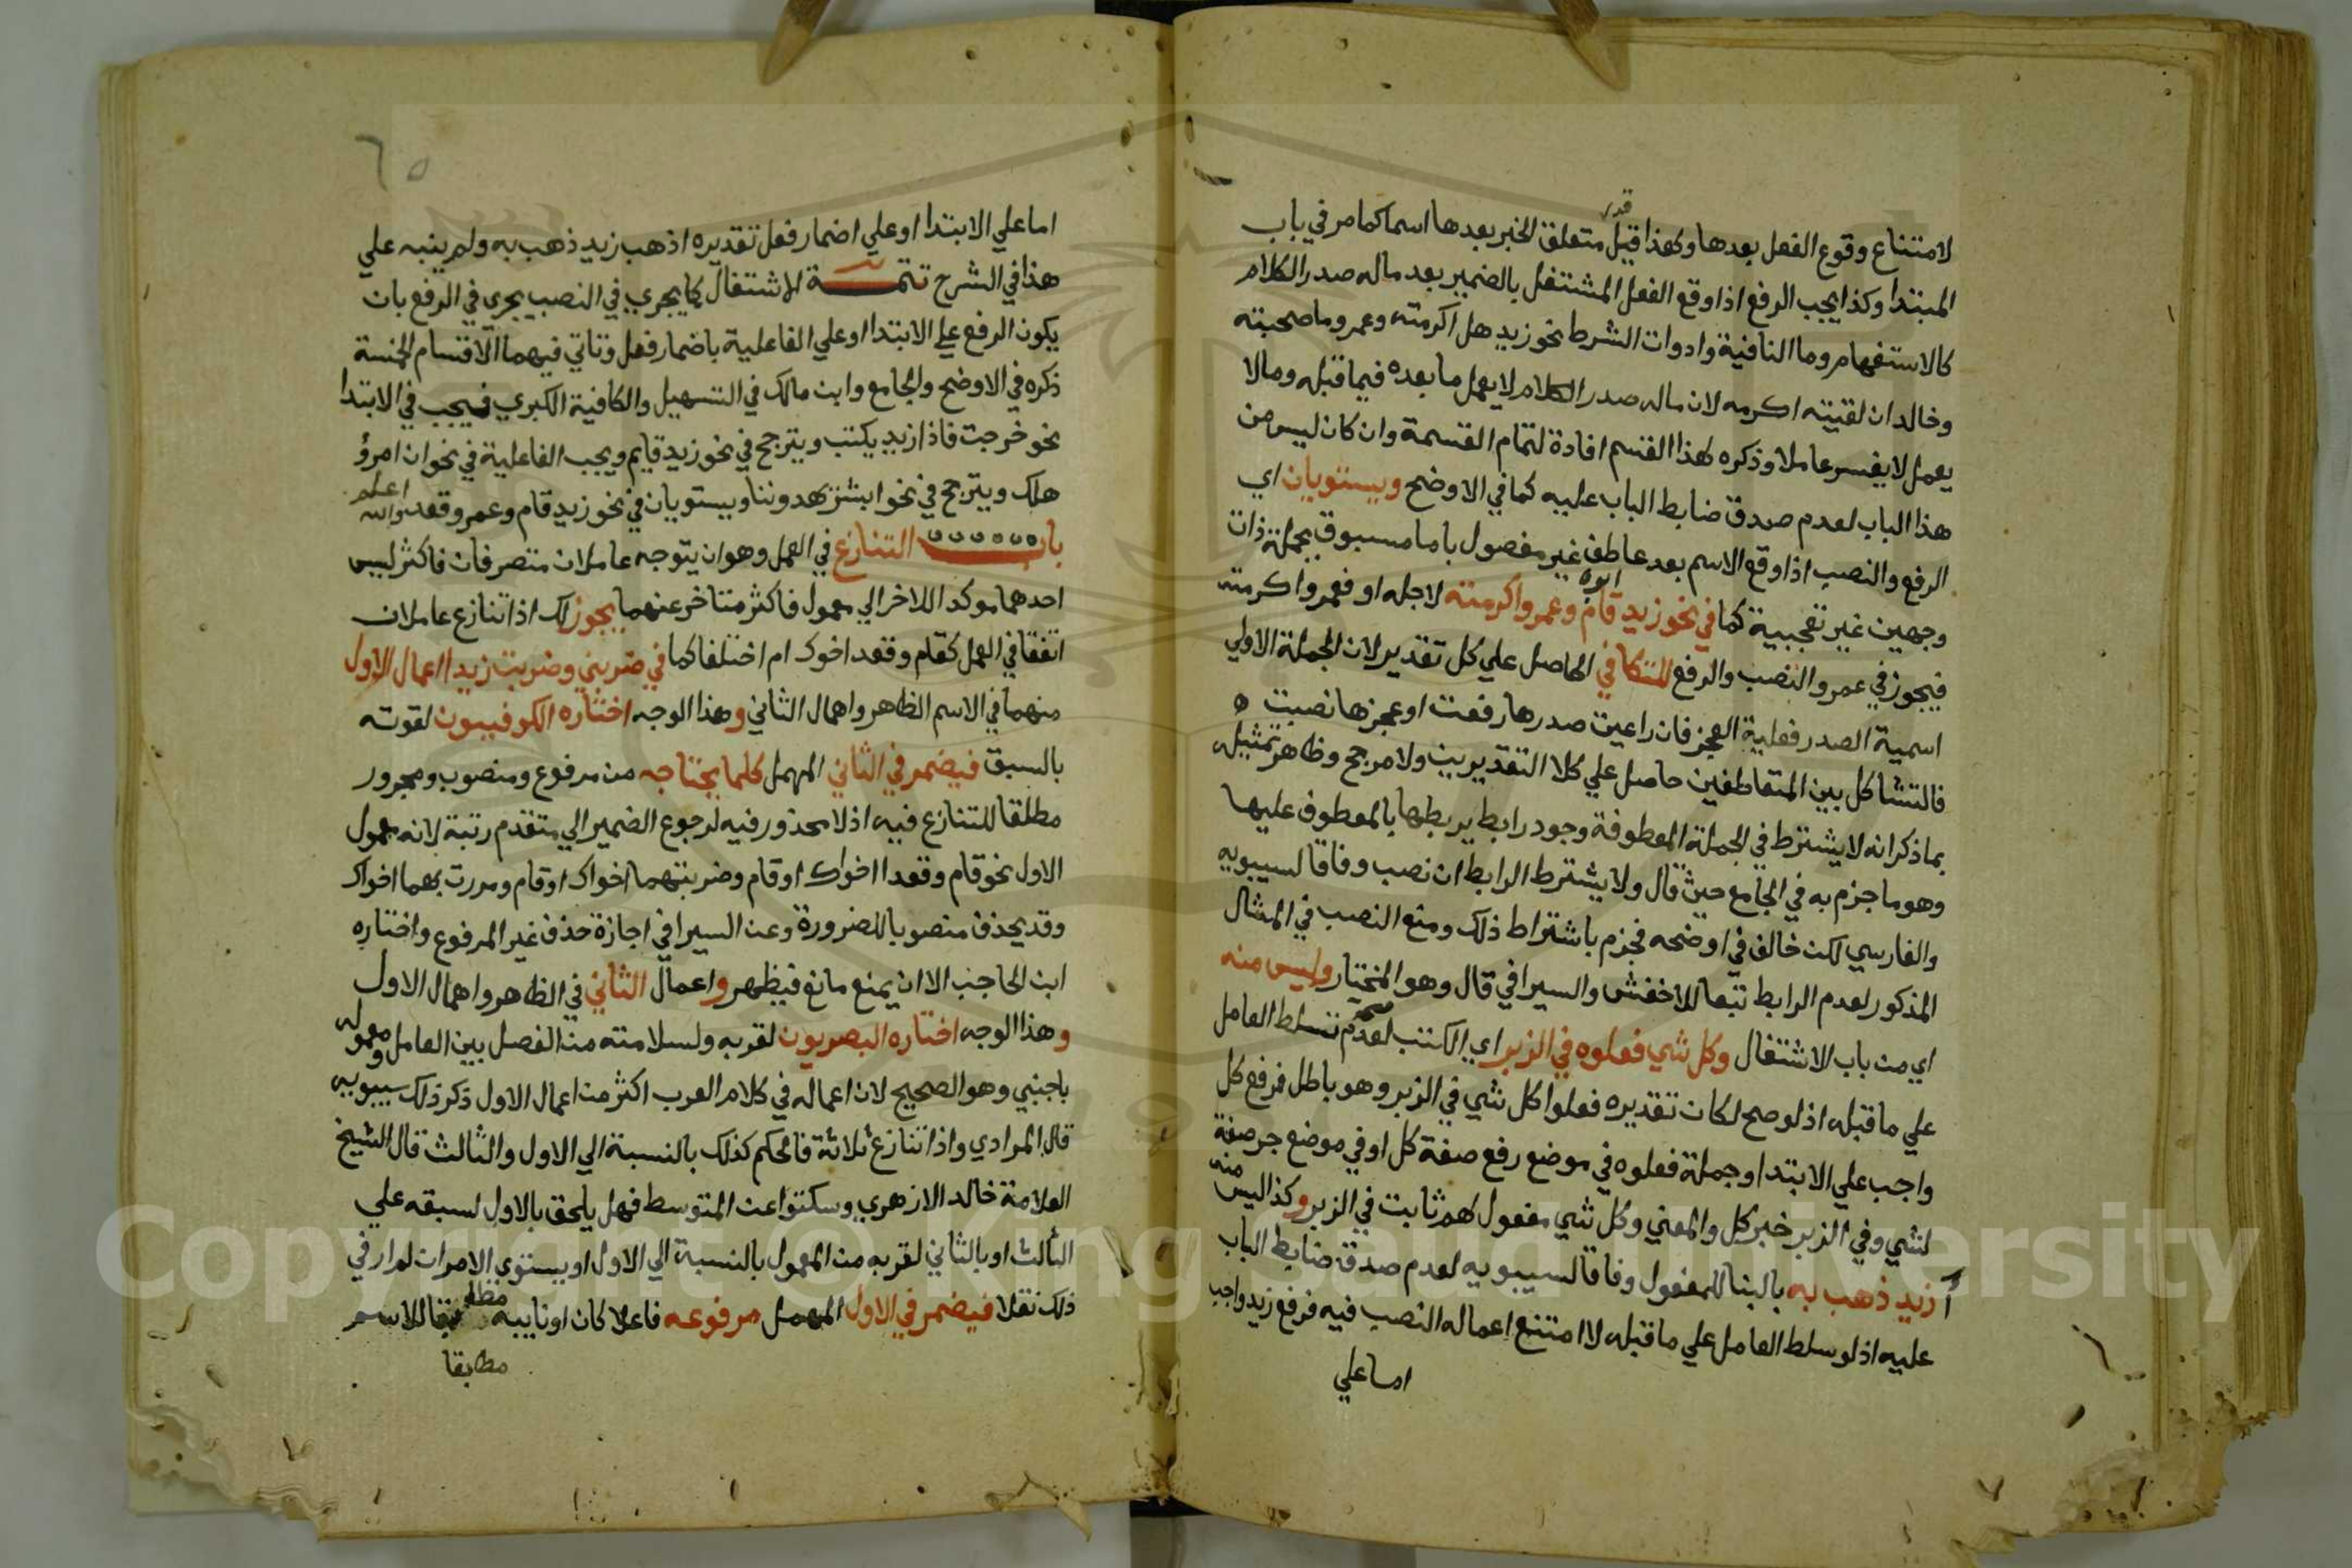 لامتناع وقوع الفعل بعدها وكهذا قيل قدر متعلق الخبر بعدها اسما كما مر في باب
المبتدا وكذا يجب الرفع اذا وقع الفعل المشتغل بالضمير بعد ماله صدر الكلام
كالاستفهام وما النافية وادوات الشرط نحو زيد هل اكرمته وعمرو ما صحبته
وخالد ان لقيته اكرمه لان ماله صدر الكلام لا يعمل ما بعده فيما قبله وما لا
يعمل لا يفسر عاملا وذكره لهذا القسم افادة لتمام القسمة وان كان ليس من
هذا الباب لعدم صدق ضابط الباب عليه كما في الاوضح ويستويان اي
الرفع والنصب اذا وقع الاسم بعد عاطف غير مفصول باما مسبوق بجملة ذات
وجهين غير تعجبية كما في نحو زيد قام ابوه وعمرو اكرمته لاجله او فعمرو اكرمته
فيجوز في عمرو النصب والرفع للتكافي الحاصل علي كل تقدير لان الجملة الاولي
اسمية الصدر فعلية العجز فان راعيت صدرها رفعت او عجزها نصبت ه
فالتشاكل بين المتعاطفين حاصل علي كلا التقديرين ولا مرجح وظاهر تمثيله
بما ذكر انه لا يشترط في الجملة المعطوفة وجود رابط يربطها بالمعطوف عليها
وهو ما جزم به في الجامع حيث قال ولا يشترط الرابط ان نصب وفاقا لسيبويه
والفارسي لكن خالف في اوضحه فجزم باشتراط ذلك ومنع النصب في المثال
المذكور لعدم الرابط تبعا للاخفش والسيرافي قال وهو المختار وليس منه
اي من باب الاشتغال وكل شي فعلوه في الزبر اي الكتب لعدم صحة تسلط العامل
علي ما قبله اذ لو صح لكان تقديره فعلوا كل شي في الزبر وهو باطل فرفع كل
واجب علي الابتدا وجملة فعلوه في موضع رفع صفة كل او في موضع جر صفة
لشي وفي الزبر خبر كل والمعني وكل شي مفعول لهم ثابت في الزبر وكذا ليس منه
أ زيد ذهب به بالبنا للمفعول وفاقا لسيبويه لعدم صدق ضابط الباب
عليه اذ لو سلط العامل علي ما قبله لامتنع اعماله النصب فيه فرفع زيد واجب
اما علي
٦٥
اما علي الابتدا او علي اضمار فعل تقديره اذهب زيد ذهب به ولم ينبه علي
هذا في الشرح تتمة الاشتغال كما يجري في النصب يجري في الرفع بان
يكون الرفع علي الابتدا او علي الفاعلية باضمار فعل وتاتي فيهما الاقسام الخمسة
ذكره في الاوضح والجامع وابن مالك في التسهيل والكافية الكبري فيجب في الابتدا
نحو خرجت فاذا زيد يكتب ويترجح في نحو زيد قايم ويجب الفاعلية في نحو ان امرؤ
هلك ويترجح في نحو ابشر يهدوننا ويستويان في نحو زيد قام وعمرو قعد والله اعلم
باب التنازع في العمل وهو ان يتوجه عاملان متصرفان فاكثر ليس
احدهما موكدا للاخر الي معمول فاكثر متاخر عنهما يجوز لك اذا تنازع عاملان
اتفقا في العمل كقام وقعد اخوك ام اختلفا كما في ضربني وضربت زيدا اعمال الاول
منهما في الاسم الظاهر واهمال الثاني وهذا الوجه اختاره الكوفيون لقوته
بالسبق فيضمر في الثاني المهمل كلما يحتاجه من مرفوع ومنصوب ومجرور
مطلقا للتنازع فيه اذ لا محذور فيه لرجوع الضمير الي متقدم رتبة لانه معمول
الاول نحو قام وقعدا اخواك او قام وضربتهما اخواك او قام ومررت بهما اخواك
وقد يحذف منصوبا للضرورة وعن السيرافي اجازة حذف غير المرفوع واختاره
ابن الحاجب الا ان يمنع مانع فيظهر واعمال الثاني في الظاهر واهمال الاول
وهذا الوجه اختاره البصريون لقربه ولسلامته من الفصل بين العامل ومعموله
باجنبي وهو الصحيح لان اعماله في كلام العرب اكثر من اعمال الاول ذكر ذلك سيبويه
قال المرادي واذا تنازع ثلاثة فالحكم كذلك بالنسبة الي الاول والثالث قال الشيخ
العلامة خالد الازهري وسكتوا عن المتوسط فهل يلحق بالاول لسبقه علي
الثالث او بالثاني لقربه من المعمول بالنسبة الي الاول او يستوي الامران لم ار في
ذلك نقلا فيضمر في الاول المهمل مرفوعه فاعلا كان او نايبه للاسم
مطابقا